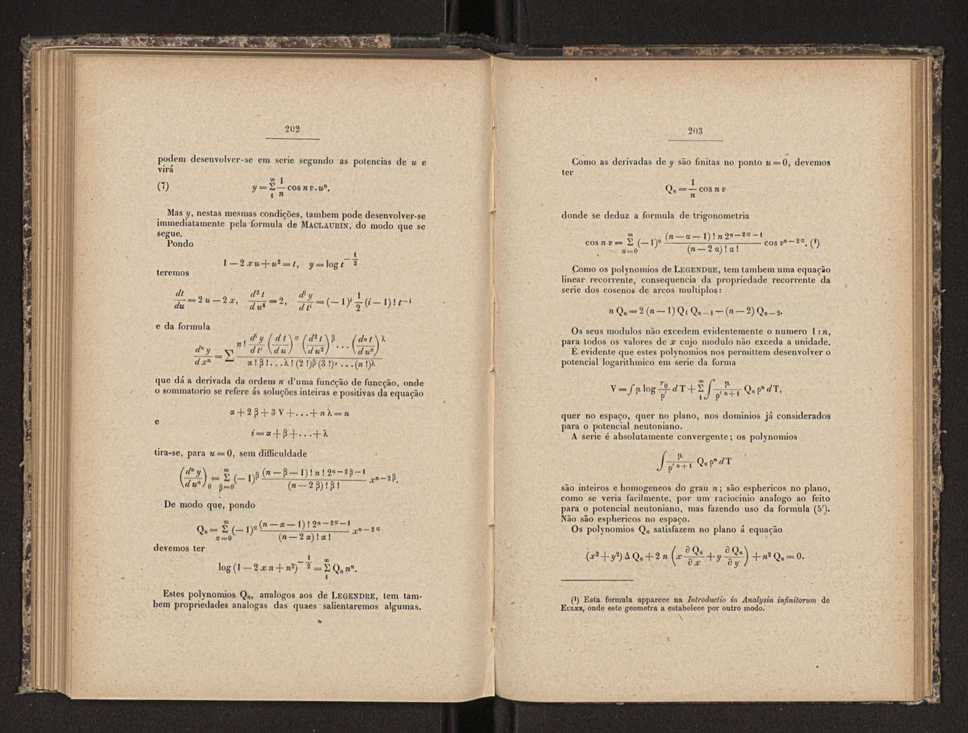 202
podem desenvolver-se em serie segundo as potencias de u e
virá
(7) y = Σ_1^∞ 1/n cos n v . uⁿ.
Mas y, nestas mesmas condições, tambem pode desenvolver-se
immediatamente pela formula de MACLAURIN, do modo que se
segue.
Pondo
1 — 2 x u + u² = t, y = log t^(— 1/2)
teremos
dt/du = 2 u — 2 x, d² t/d u² = 2, dⁱ y/d tⁱ = (— 1)ⁱ 1/2 (i — 1) ! t^(—i)
e da formula
dⁿ y/d xⁿ = Σ n ! dⁱ y/d tⁱ (d t/d u)^α (d² t/d u²)^β . . . (dⁿ t/d uⁿ)^λ / α ! β ! . . . λ ! (2 !)^β (3 !)^γ . . . (n !)^λ
que dá a derivada da ordem n d'uma funcção de funcção, onde
o sommatorio se refere ás soluções inteiras e positivas da equação
α + 2 β + 3 V + . . . + n λ = n
e
i = α + β + . . . + λ
tira-se, para u = 0, sem difficuldade
(dⁿ y/d uⁿ)₀ = Σ_{β=0}^∞ (— 1)^β (n — β — 1) ! n ! 2^(n—2β—1) / (n — 2 β) ! β ! x^(n—2β).
De modo que, pondo
Qₙ = Σ_{α=0}^∞ (— 1)^α (n — α — 1) ! 2^(n—2α—1) / (n — 2 α) ! α ! x^(n—2α)
devemos ter
log (1 — 2 x n + n²)^(— 1/2) = Σ_1^∞ Qₙ nⁿ.
Estes polynomios Qₙ, analogos aos de LEGENDRE, tem tam-
bem propriedades analogas das quaes salientaremos algumas.
203
Como as derivadas de y são finitas no ponto u = 0, devemos
ter
Qₙ = 1/n cos n v
donde se deduz a formula de trigonometria
cos n v = Σ_{α=0}^∞ (— 1)^α (n — α — 1) ! n 2^(n—2α—1) / (n — 2 α) ! α ! cos v^(n—2α). (¹)
Como os polynomios de LEGENDRE, tem tambem uma equação
linear recorrente, consequencia da propriedade recorrente da
serie dos cosenos de arcos multiplos:
n Qₙ = 2 (n — 1) Q₁ Qₙ₋₁ — (n — 2) Qₙ₋₂.
Os seus modulos não excedem evidentemente o numero 1 : n,
para todos os valores de x cujo modulo não exceda a unidade.
É evidente que estes polynomios nos permittem desenvolver o
potencial logarithmico em serie da forma
V = ∫ μ log r₀/ρ' d T + Σ_1^∞ ∫ μ/ρ'ⁿ⁺¹ Qₙ ρⁿ d T,
quer no espaço, quer no plano, nos dominios já considerados
para o potencial neutoniano.
A serie é absolutamente convergente; os polynomios
∫ μ/ρ'ⁿ⁺¹ Qₙ ρⁿ d T
são inteiros e homogeneos do grau n; são esphericos no plano,
como se veria facilmente, por um raciocinio analogo ao feito
para o potencial neutoniano, mas fazendo uso da formula (5').
Não são esphericos no espaço.
Os polynomios Qₙ satisfazem no plano á equação
(x² + y²) Δ Qₙ + 2 n (x ∂ Qₙ/∂ x + y ∂ Qₙ/∂ y) + n² Qₙ = 0.
(¹) Esta formula apparece na Introductio in Analysin infinitorum de
EULER, onde este geometra a estabelece por outro modo.